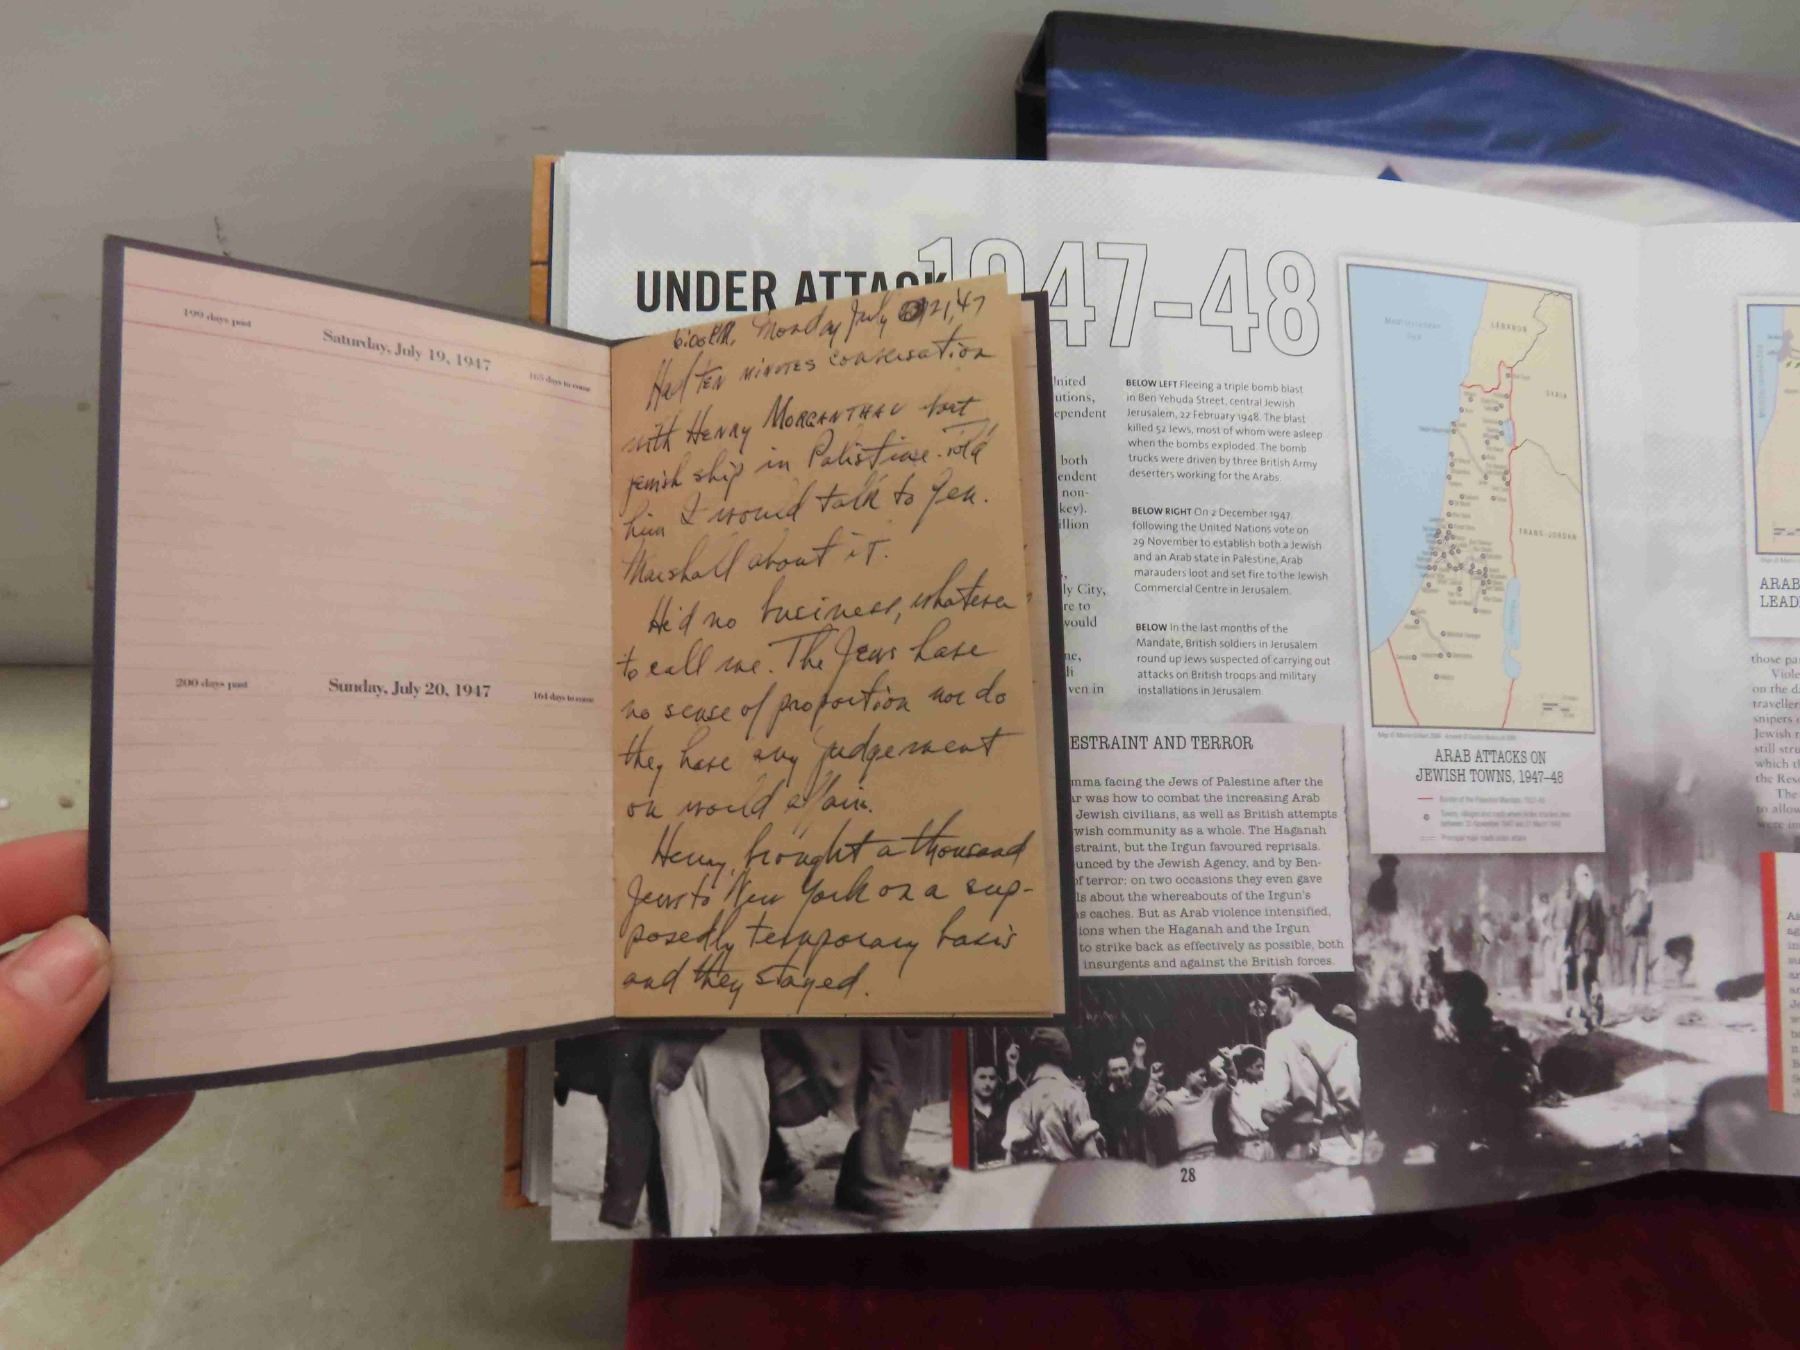 199 days past
Saturday, July 19, 1947
165 days to come
200 days past
Sunday, July 20, 1947
164 days to come
6:00 P.M. Monday July 21, '47
Had ten minutes conversation
with Henry Morganthau
jewish ship in Palistine. Told
him I would talk to Gen.
Marshall about it.
He'd no business, whatever
to call me. The Jews have
no sense of proportion nor do
they have any judgement
on world affairs.
Henry brought a thousand
Jews to New York on a sup-
posedly temporary basis
and they stayed.
UNDER ATTACK
1947-48
United
utions,
ependent
both
endent
non-
key).
illion
ly City,
re to
would
ne,
li
ven in
BELOW LEFT Fleeing a triple bomb blast
in Ben Yehuda Street, central Jewish
Jerusalem, 22 February 1948. The blast
killed 52 Jews, most of whom were asleep
when the bombs exploded. The bomb
trucks were driven by three British Army
deserters working for the Arabs.
BELOW RIGHT On 2 December 1947,
following the United Nations vote on
29 November to establish both a Jewish
and an Arab state in Palestine, Arab
marauders loot and set fire to the Jewish
Commercial Centre in Jerusalem.
BELOW In the last months of the
Mandate, British soldiers in Jerusalem
round up Jews suspected of carrying out
attacks on British troops and military
installations in Jerusalem
ESTRAINT AND TERROR
mma facing the Jews of Palestine after the
ar was how to combat the increasing Arab
Jewish civilians, as well as British attempts
wish community as a whole. The Haganah
straint, but the Irgun favoured reprisals.
unced by the Jewish Agency, and by Ben-
of terror: on two occasions they even gave
ls about the whereabouts of the Irgun's
s caches. But as Arab violence intensified,
ions when the Haganah and the Irgun
to strike back as effectively as possible, both
insurgents and against the British forces.
28
Mediterranean
Sea
LEBANON
SYRIA
TRANS-JORDAN
ARAB ATTACKS ON
JEWISH TOWNS, 1947–48
Border of the Palestine Mandate
ARAB
LEAD
those par
Viole
on the da
travellers
snipers o
Jewish r
still stru
which th
the Reso
The
to allow
were im